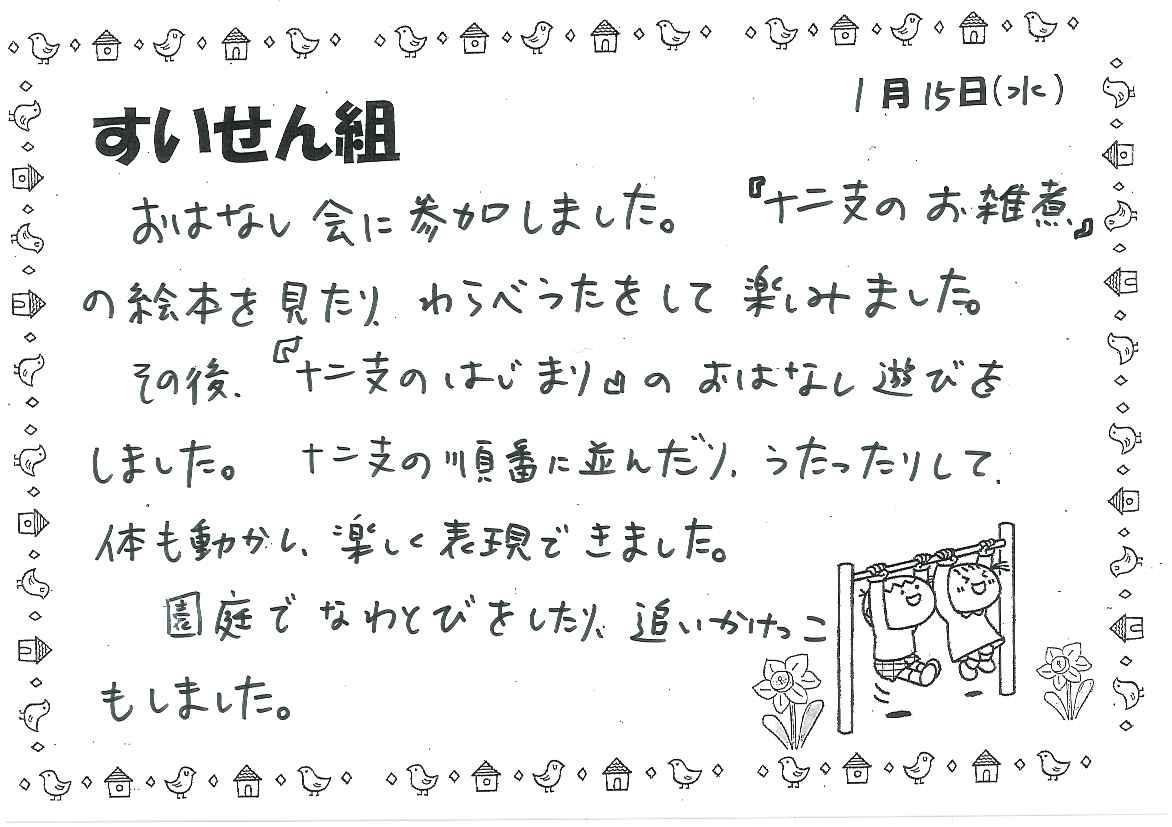 1月15日(水)
すいせん組
おはなし会に参加しました。 『十二支のお雑煮』
の絵本を見たり、わらべうたをして楽しみました。
その後、『十二支のはじまり』のおはなし遊びを
しました。 十二支の順番に並んだり、うたったりして、
体も動かし、楽しく表現できました。
園庭でなわとびをしたり、追いかけっこ
もしました。